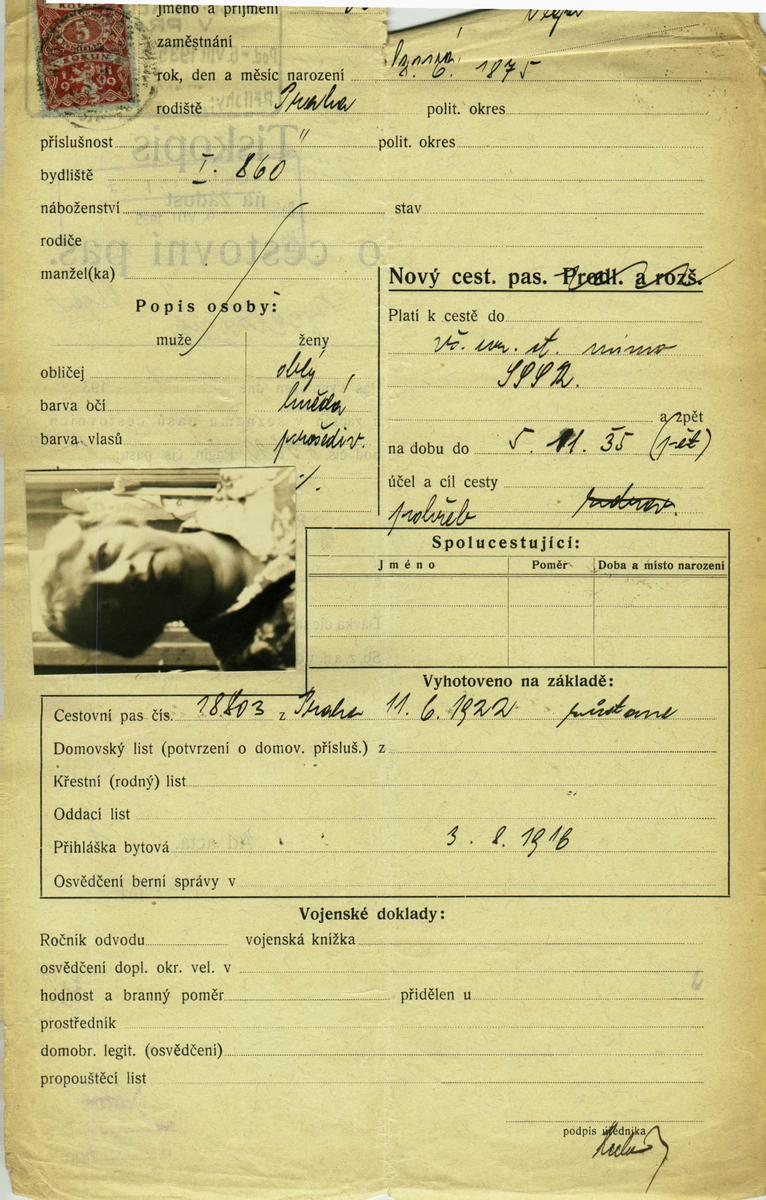 KOLEK
5
KORUN
jméno a příjmení
zaměstnání
rok, den a měsíc narození 8. 6. 1875
rodiště Praha polit. okres
příslušnost " polit. okres
bydliště I. 860
náboženství stav
rodiče
manžel(ka)
Nový cest. pas. Prodl. a rozš.
Popis osoby:
Platí k cestě do
muže ženy
vš. evr. st. mimo
SSSR.
obličej oblý
barva očí hnědá
barva vlasů prošediv.
a zpět
na dobu do 5. 11. 35 (pět)
účel a cíl cesty
Spolucestující:
Jméno Poměr Doba a místo narození
Vyhotoveno na základě:
Cestovní pas čís. z Praha 11. 6. 1922
Domovský list (potvrzení o domov. přísluš.) z
Křestní (rodný) list
Oddací list
Přihláška bytová 3. 8. 1916
Osvědčení berní správy v
Vojenské doklady:
Ročník odvodu vojenská knížka
osvědčení dopl. okr. vel. v
hodnost a branný poměr přidělen u
prostředník
domobr. legit. (osvědčení)
propouštěcí list
podpis úředníka